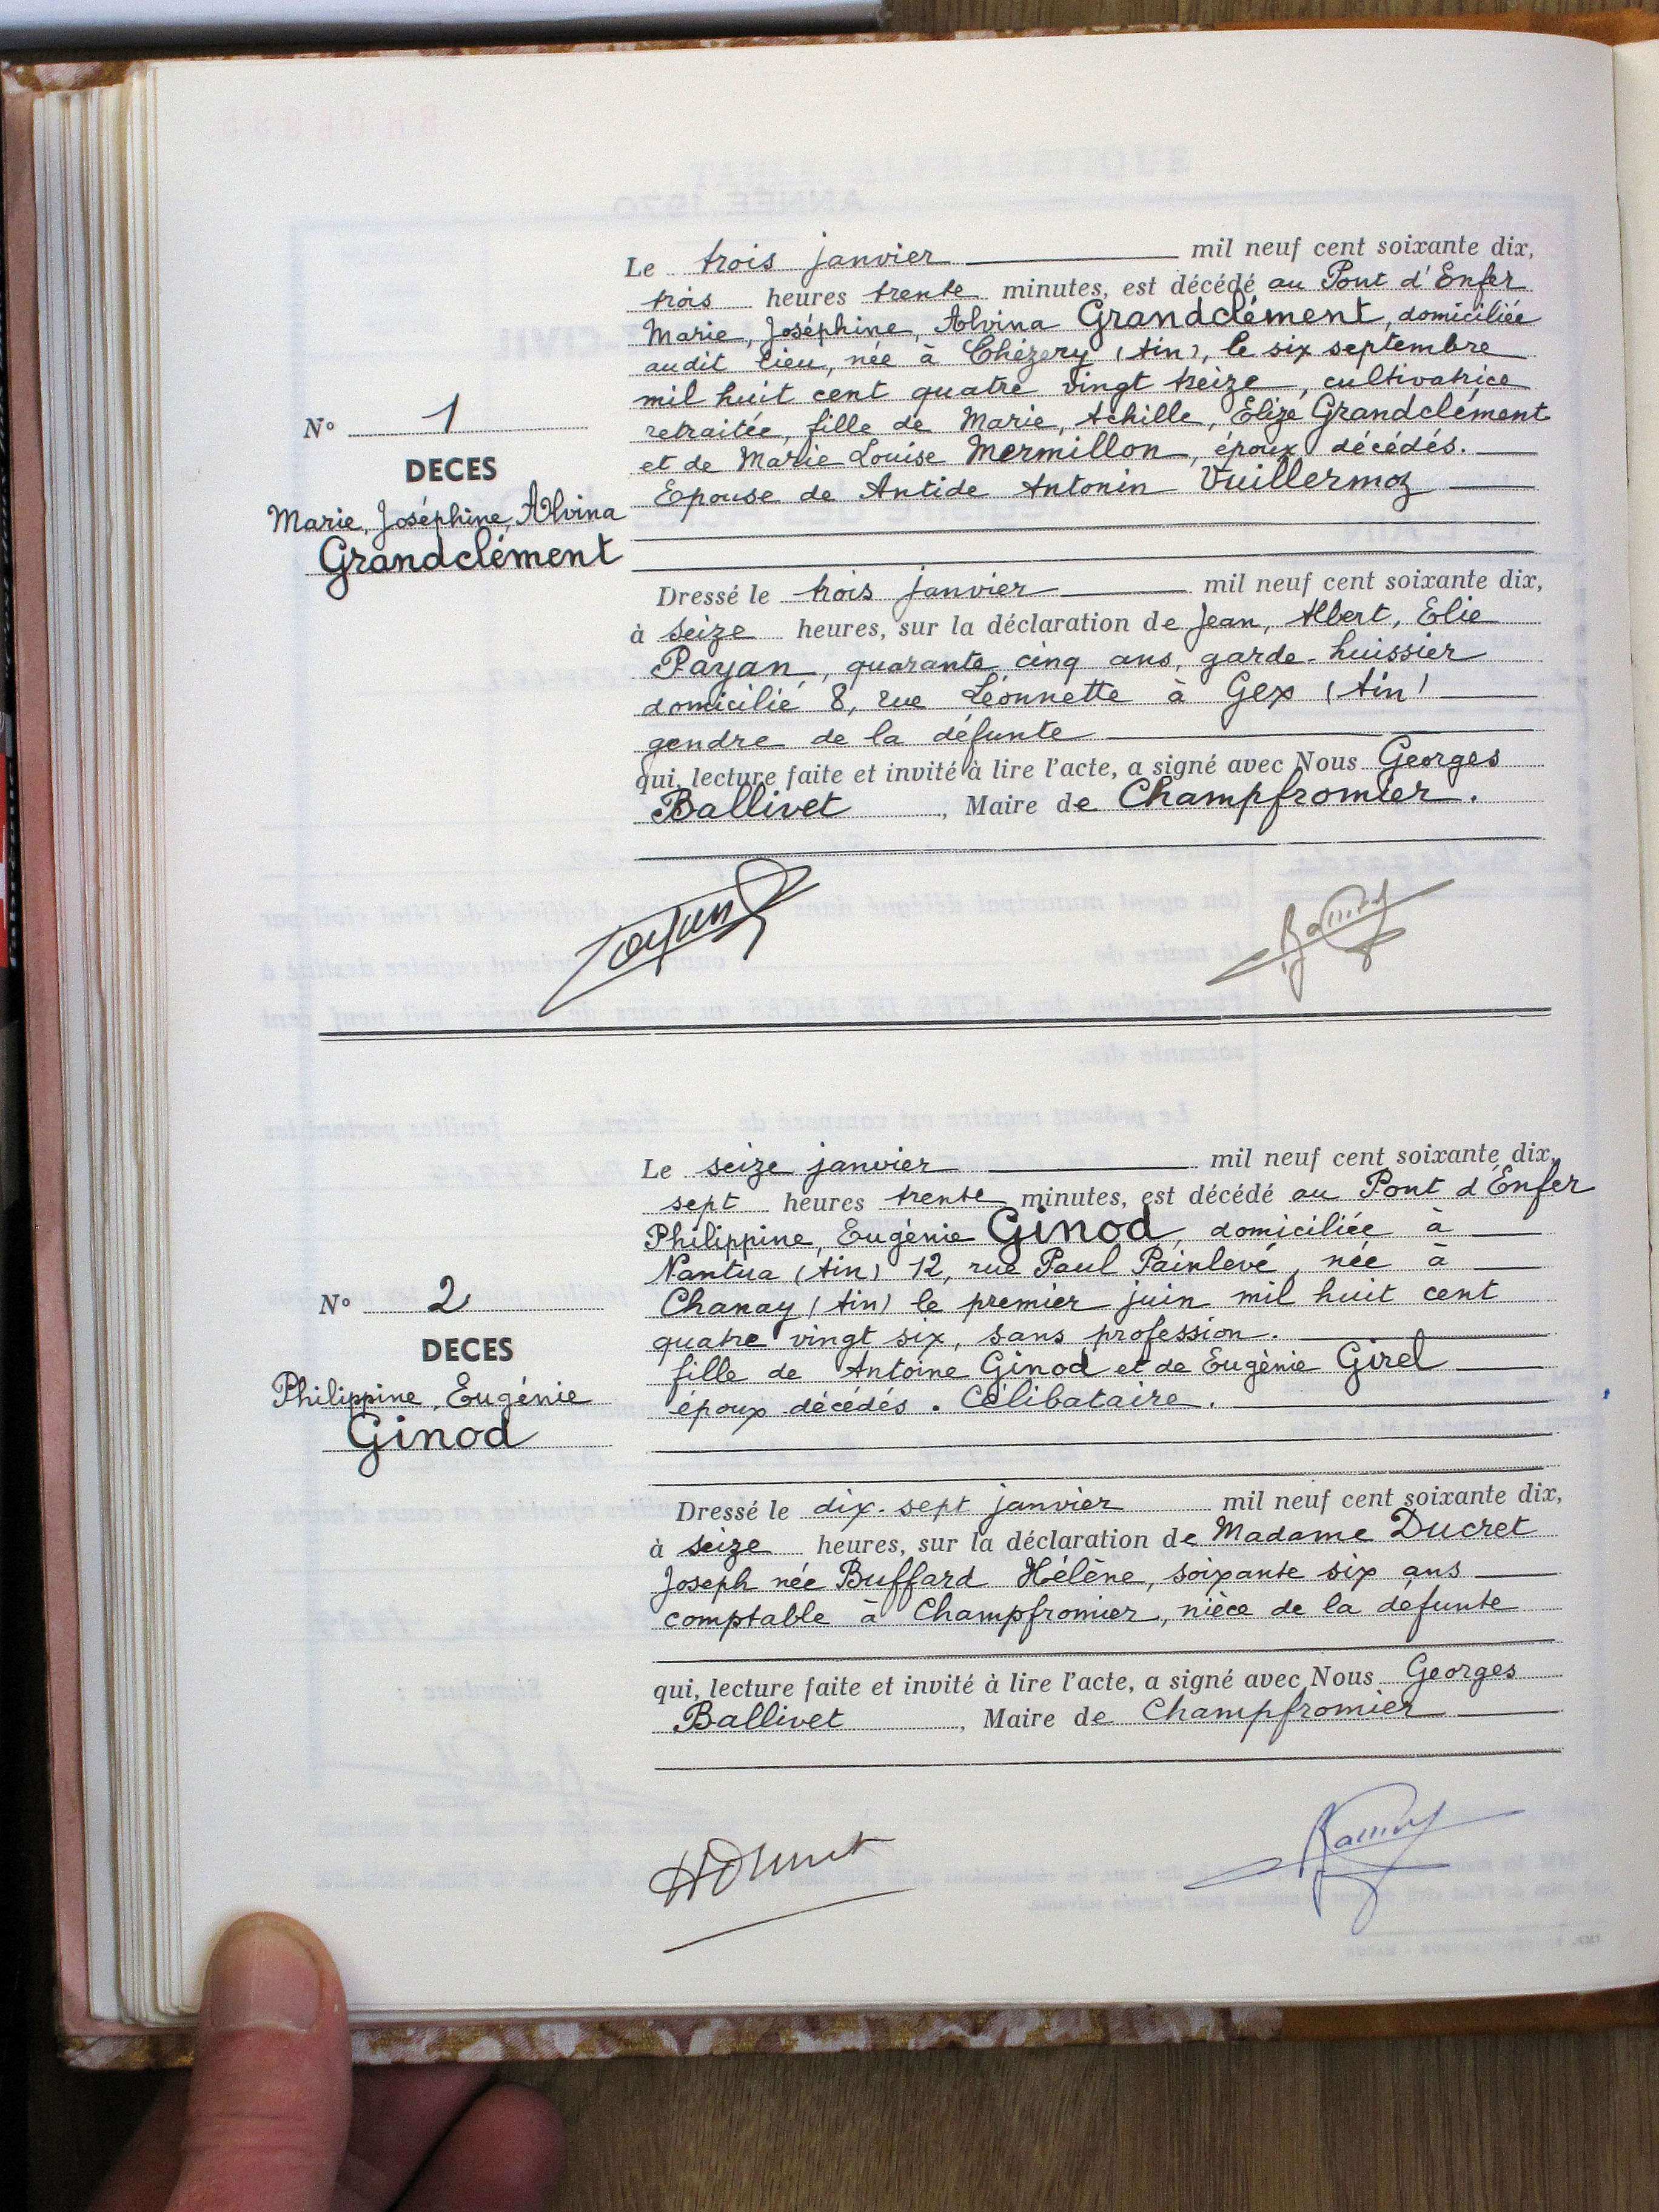 Le trois janvier mil neuf cent soixante dix,
trois heures trente minutes, est décédé au Pont d'Enfer
Marie, Joséphine, Alvina Grandclément, domiciliée
audit lieu, née à Chézery (Ain), le six septembre
mil huit cent quatre vingt treize, cultivatrice
retraitée, fille de Marie, Achille, Elizé Grandclément
et de Marie Louise Mermillon, époux décédés.
Epouse de Antide Antonin Vuillermoz
N° 1
DECES
Marie, Joséphine, Alvina
Grandclément
Dressé le trois janvier mil neuf cent soixante dix,
à seize heures, sur la déclaration de Jean, Albert, Elie
Payan, quarante cinq ans, garde-huissier
domicilié 8, rue Léonnette à Gex (Ain)
gendre de la défunte
qui, lecture faite et invité à lire l'acte, a signé avec Nous Georges
Ballivet, Maire de Champfromier.
Le seize janvier mil neuf cent soixante dix,
sept heures trente minutes, est décédé au Pont d'Enfer
Philippine, Eugénie Ginod, domiciliée à
Nantua (Ain) 12, rue Paul Painlevé, née à
Chanay (Ain) le premier juin mil huit cent
quatre vingt six, sans profession.
fille de Antoine Ginod et de Eugènie Girel
époux décédés. Célibataire.
N° 2
DECES
Philippine, Eugénie
Ginod
Dressé le dix-sept janvier mil neuf cent soixante dix,
à seize heures, sur la déclaration de Madame Ducret
Joseph née Buffard Hélène, soixante six ans
comptable à Champfromier, nièce de la défunte
qui, lecture faite et invité à lire l'acte, a signé avec Nous Georges
Ballivet, Maire de Champfromier